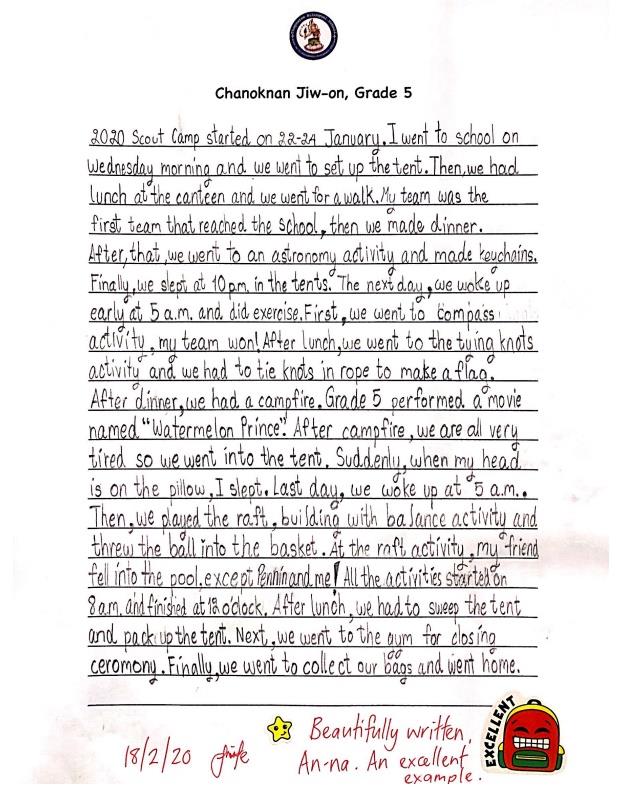 Chanoknan Jiw-on, Grade 5
2020 Scout Camp started on 22-24 January. I went to school on
Wednesday morning and we went to set up the tent. Then, we had
lunch at the canteen and we went for a walk. My team was the
first team that reached the school, then we made dinner.
After, that, we went to an astronomy activity and made keychains.
Finally, we slept at 10 p.m. in the tents. The next day, we woke up
early at 5 a.m. and did exercise. First, we went to compass
activity, my team won! After lunch, we went to the tying knots
activity and we had to tie knots in rope to make a flag.
After dinner, we had a campfire. Grade 5 performed a movie
named "Watermelon Prince". After campfire, we are all very
tired so we went into the tent. Suddenly, when my head
is on the pillow, I slept. Last day, we woke up at 5 a.m..
Then, we played the raft, building with balance activity and
threw the ball into the basket. At the raft activity, my friend
fell into the pool, except Pennin and me! All the activities started on
8 a.m. and finished at 12 o'clock. After lunch, we had to sweep the tent
and pack up the tent. Next, we went to the gum for closing
ceromony. Finally, we went to collect our bags and went home.
18/2/20
Beautifully written,
An-na. An excellent
example.
EXCELLENT